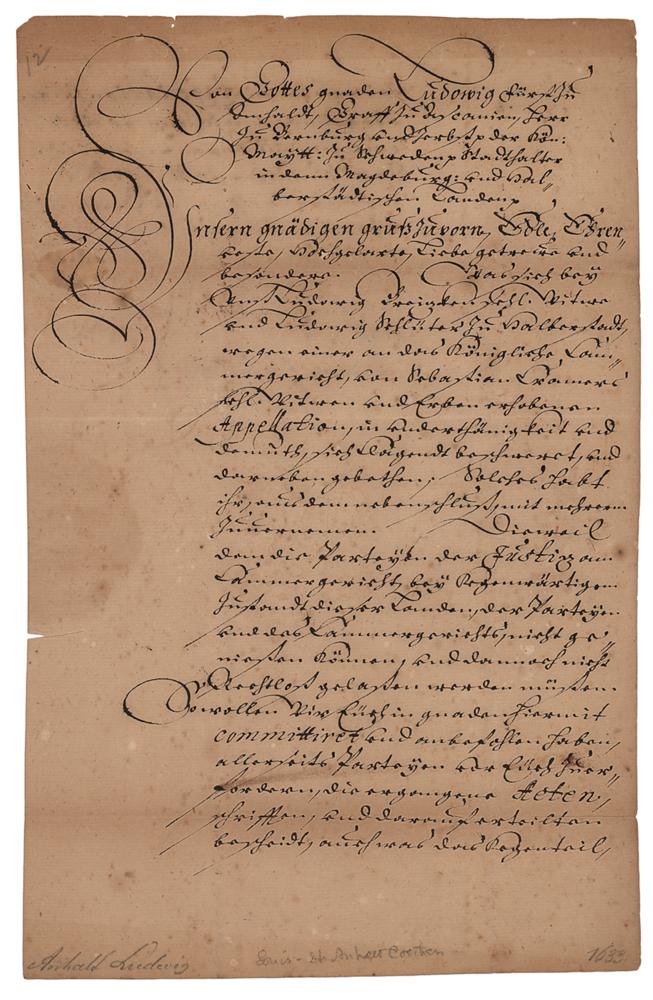 12
Von Gottes gnaden Ludowig Fürst zu
Anhaldt, Graff zu Ascanien, Herr
zu Bernburg und Zerbst p der Kön:
Maytt: zu Schweden p Stadthalter
in denn Magdeburg: und Hal„
berstädtischen Landen p
Unsern gnädigen gruß zuvorn, Edle, Ehren„
veste, Hochgelarte, Liebe getrewe und
besondere. Was sich bey
Unß Ludowig Sehl. Witwe
und Ludowig Schlüter zu Halberstadt,
wegen einer an das Königliche Cam„
mergericht, von Sebastian Cramers
sehl. Witwen und Erben erhobenen
Appellation, in underthänigkeit und
demuth, sich klagendt beschweret, und
darneben gebethen, Solches habt
ihr, aus dem nebenschluß, mit mehrerm
zuvernemen. Dieweil
dem die Parteyen der Justiz am
Cammergericht, bey kegenwärtigem
Zustandt dieser Landen, der Parteyen
und des Cammergerichts, nicht ge„
nießen können, und dannoch nicht
Rechtloß gelaßen werden müßen.
So wollen Wir Euch in gnaden hiermit
committiret und anbefohlen haben,
allerseits Parteyen vor Euch zuer„
fordern, die ergangene Acten,
schrifften, und darauf erteilten
bescheidt, auch was das kegenteil,
Anhalt Ludewig
Louis - Anhalt Coethen
1633